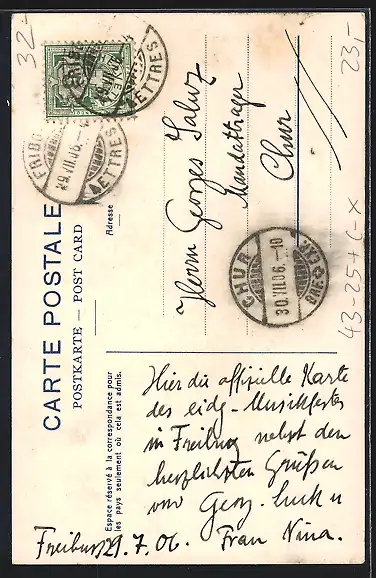 32-
23,-
FRIBOURG
LETTRES
29.VII.06.
CARTE POSTALE
POSTKARTE — POST CARD
Adresse
Herrn Georges Saluz
Chur
CHUR
30.VII.06.-10
43-25+C-X
Espace réservé à la correspondance pour
les pays seulement où cela est admis.
Hier die offizielle Karte
des eidg. Musikfestes
in Freiburg nebst den
herzlichsten Grüßen
von Georg
Freiburg 29.7.06. Frau Nina.